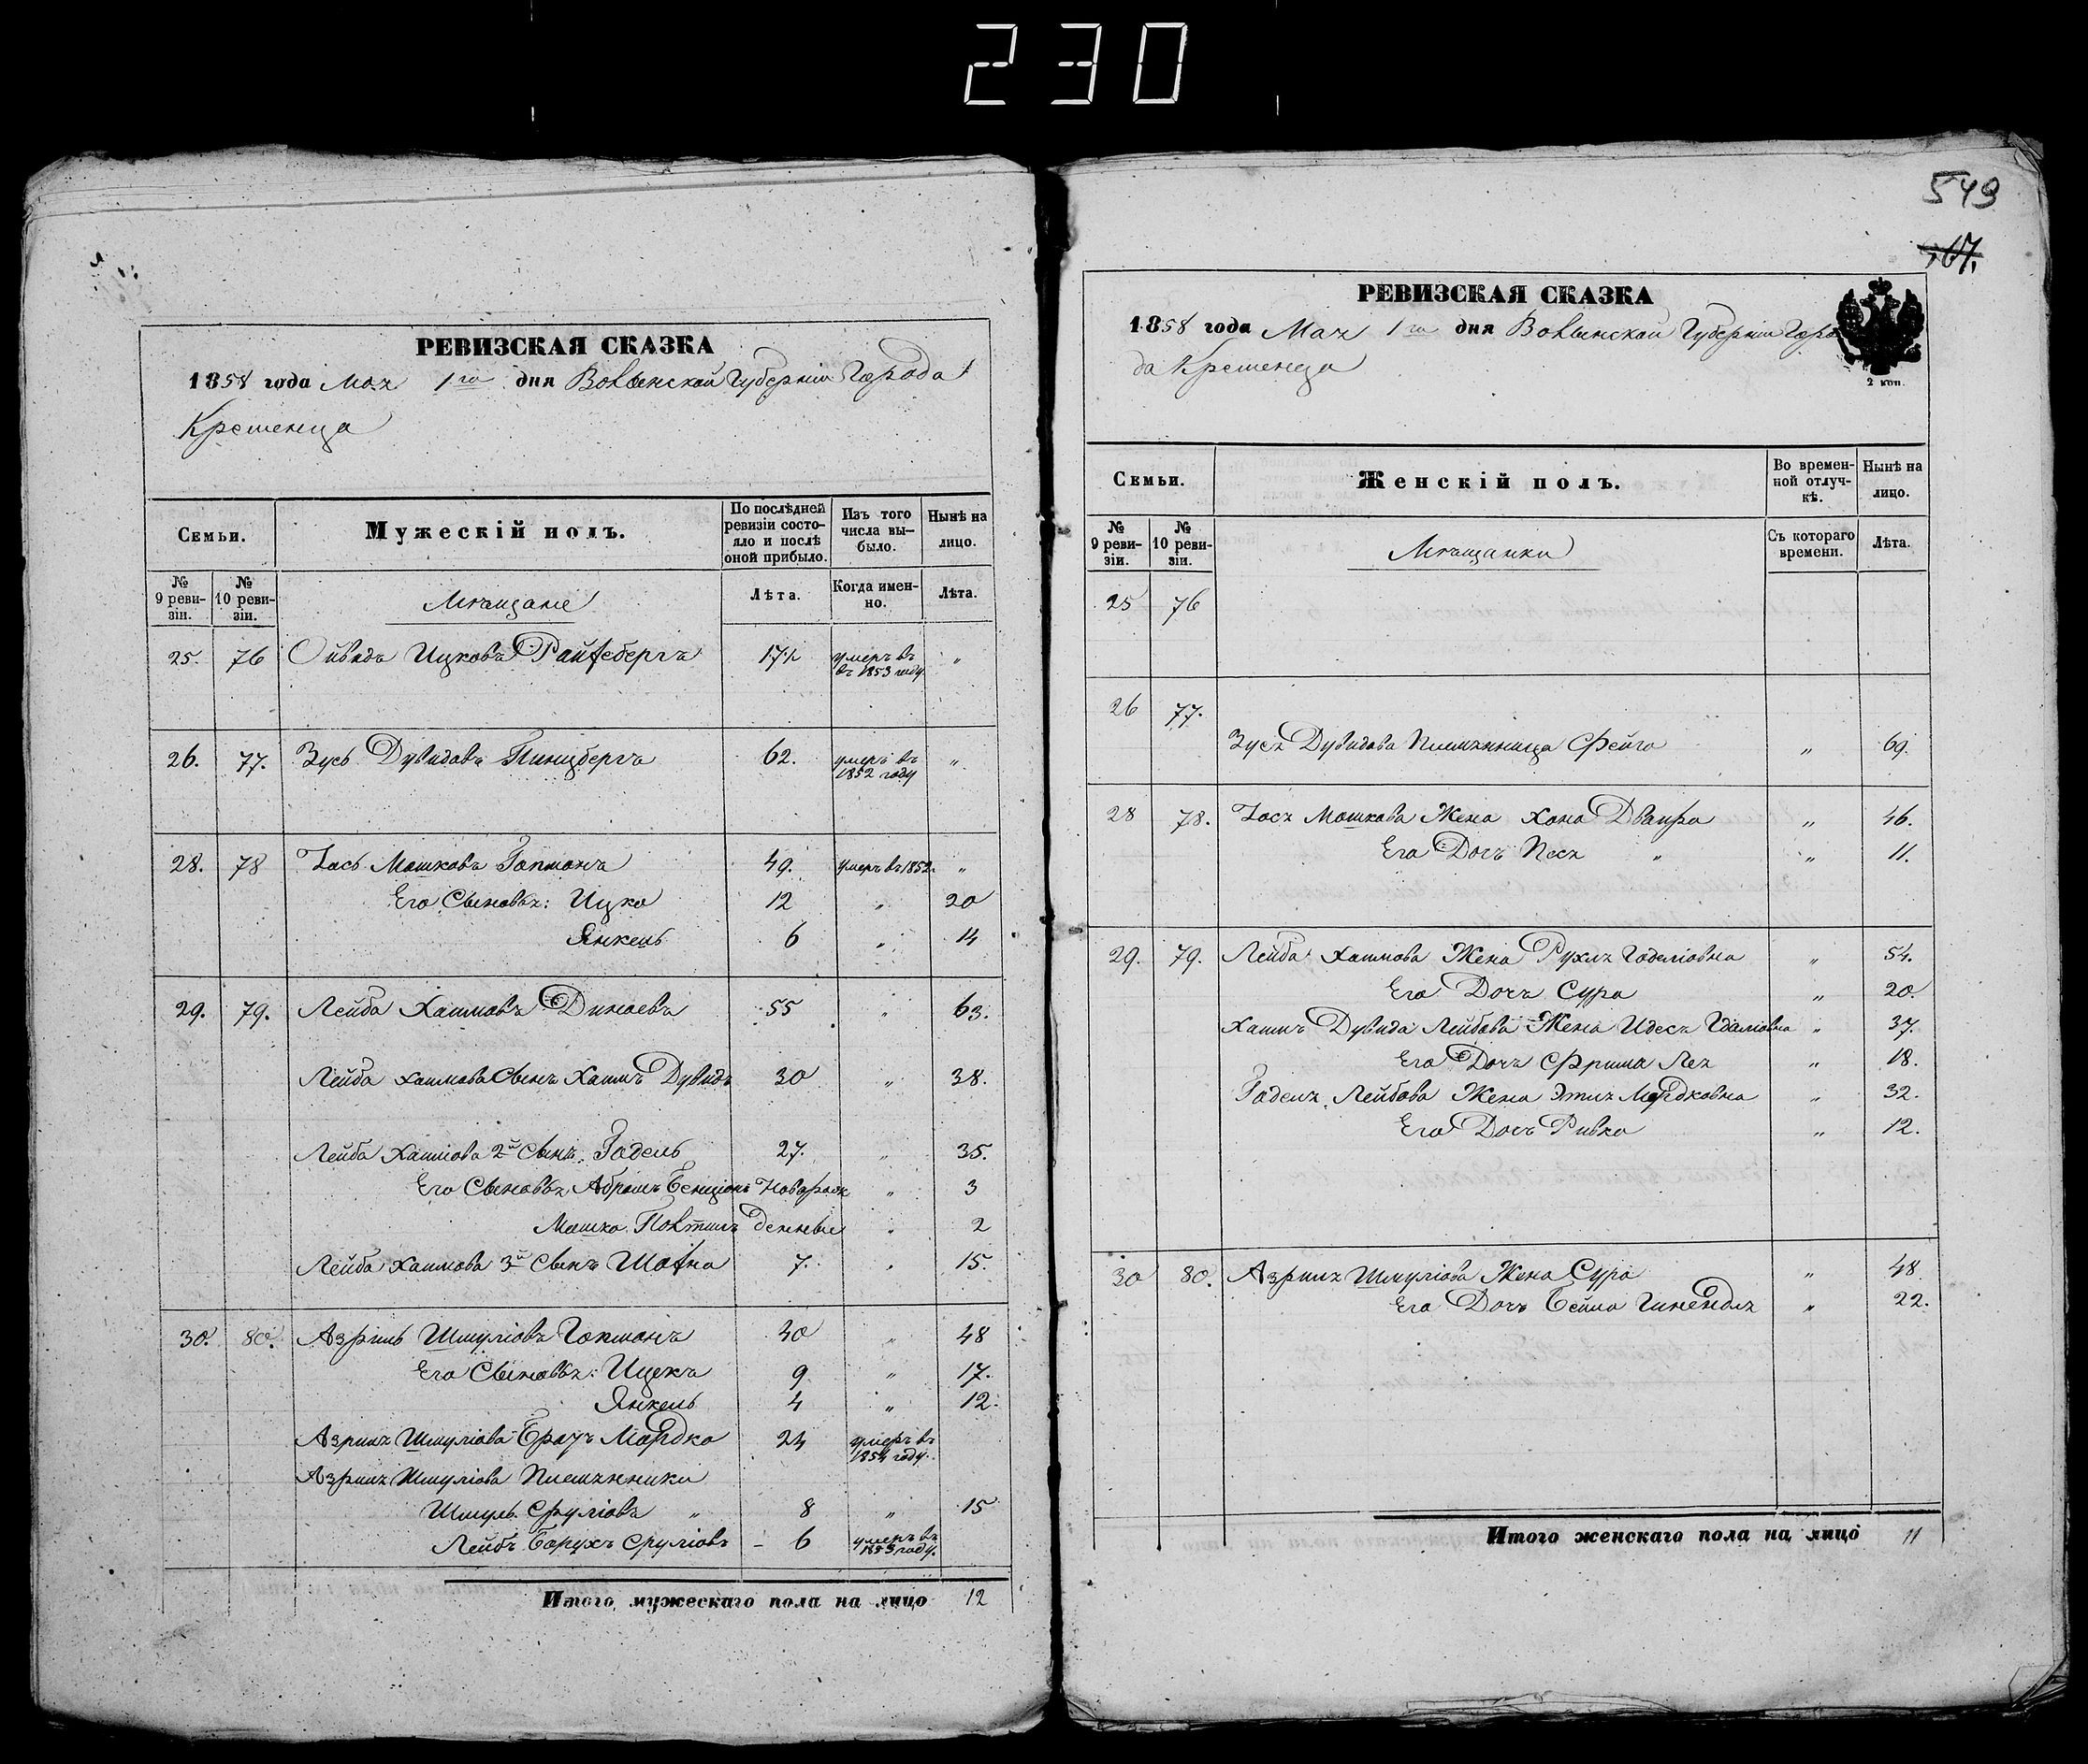 230
РЕВИЗСКАЯ СКАЗКА
1858 года Мая 1го дня Волынской Губерніи Города
Кременца
Семьи.
Мужескій полъ.
По послѣдней ревизіи состояло и послѣ оной прибыло.
Изъ того числа выбыло.
Нынѣ на лицо.
№ 9 ревизіи.
№ 10 ревизіи.
Мѣщане
Лѣта.
Когда именно.
Лѣта.
25. 76 Ицковъ 17½ умеръ въ въ 1853 году "
26. 77. Зусь Дувидовъ 62. умеръ въ 1852 году "
28. 78 Мошковъ 49. умеръ въ 1852. "
Его Сыновья: Ицко 12 " 20
Янкель 6 " 14
29. 79. Лейба Хаимовъ 55 " 63.
Лейба Хаимова Сынъ Хаимъ Дувидъ 30 " 38.
Лейба Хаимова 2й Сынъ Годель 27. " 35.
Его Сыновья Абрамъ Бенціонъ Новорож " 3
Мошко денные " 2
Лейба Хаимова 3й Сынъ 7. " 15.
30. 80. Азриль Шмуліовъ 40 " 48
Его Сыновья: Ицекъ 9 " 17.
Янкель 4 " 12.
Азриля Шмуліова Братъ Мордко 24 умеръ въ 1854 году.
Азриля Шмуліова Племянники
Шмуль Сруліовъ " 8 " 15
Лейбъ Борухъ Сруліовъ - 6 умеръ въ 1853 году.
Итого мужескаго пола на лицо 12
549
РЕВИЗСКАЯ СКАЗКА
1858 года Мая 1го дня Волынской Губерніи Горо
да Кременца
2 коп.
Семьи.
Женскій полъ.
Во временной отлучкѣ.
Нынѣ на лицо.
№ 9 ревизіи.
№ 10 ревизіи.
Мѣщанки
Съ котораго времени.
Лѣта.
25 76
26 77.
Зуся Дувидова Племянница Фейга " 69.
28 78. Мошкова Жена Хана Двойра " 46.
Его Дочь Песя " " 11.
29. 79. Лейба Хаимова Жена Рухля Годеліовна " 54.
Его Дочь Сура " 20.
Хаимъ Дувида Лейбова Жена Идеся " 37.
Его Дочь Фрима Лея " 18.
Годеля Лейбова Жена Этля Мордковна " 32.
Его Дочь Ривка " 12.
30 80. Азриля Шмуліова Жена Сура " 48
Его Дочь Бейла " 22.
Итого женскаго пола на лицо 11